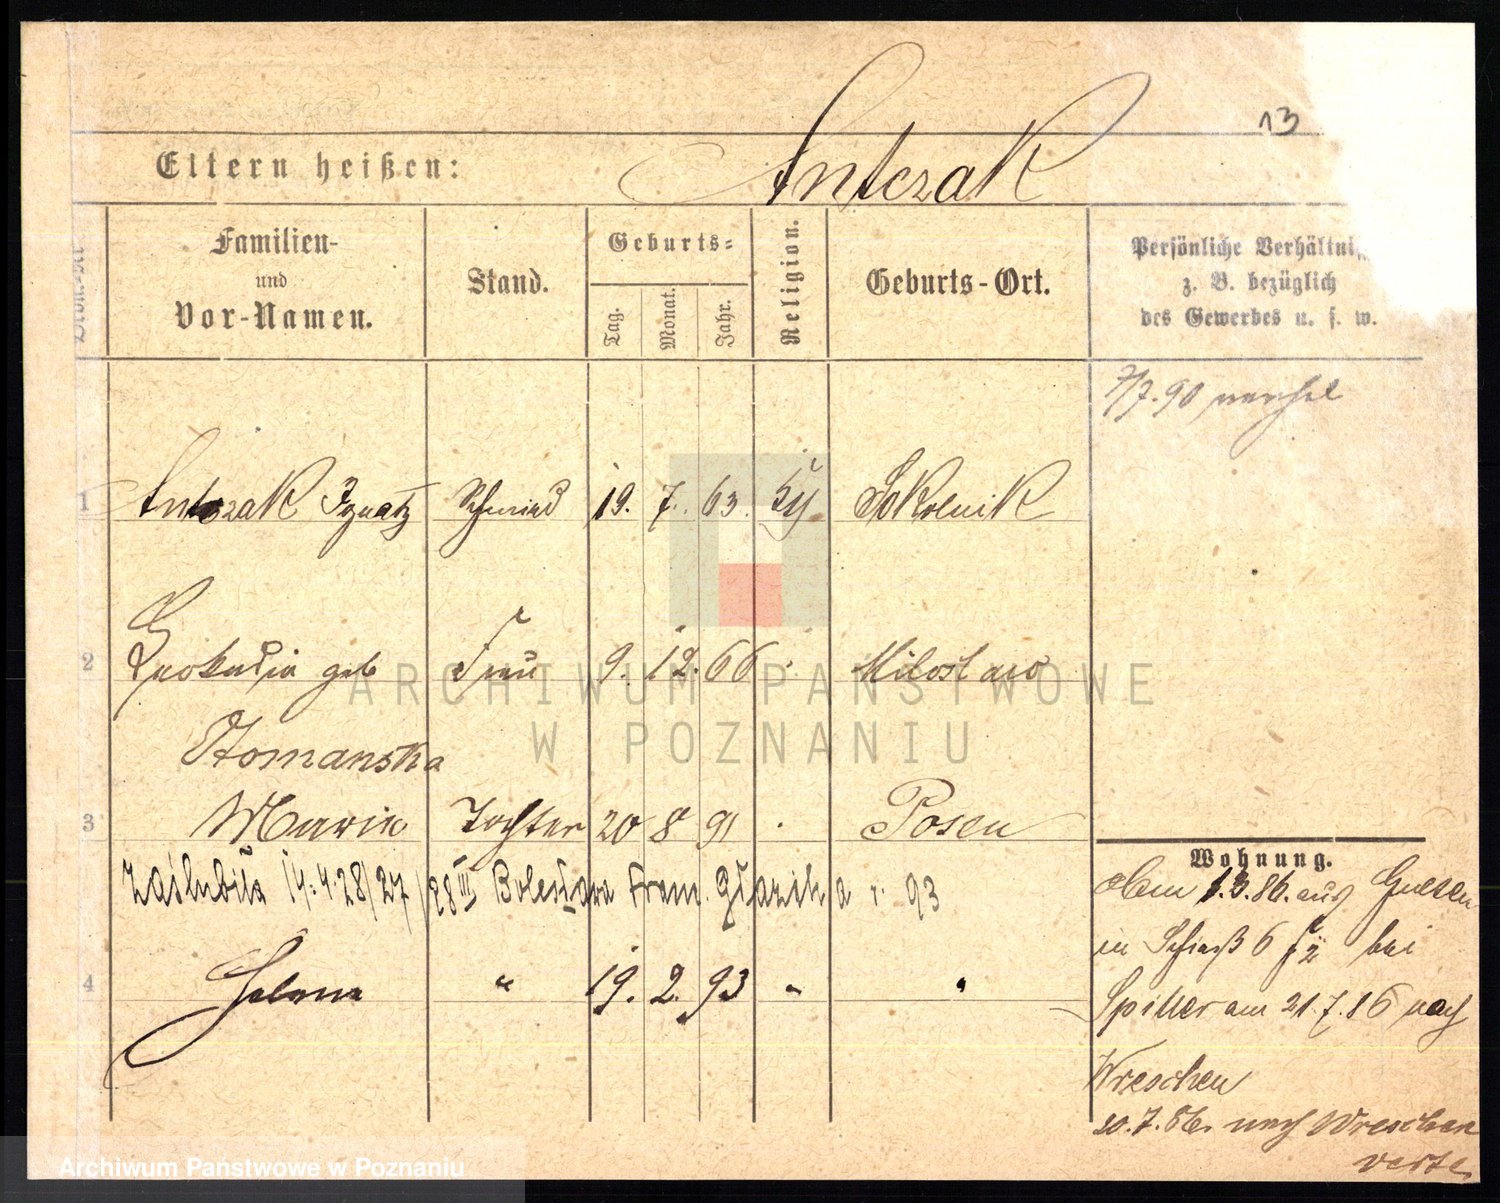 13
Eltern heißen: Antczak
Nummer
Familien-
und
Vor-Namen.
Stand.
Geburts-
Tag.
Monat.
Jahr.
Religion.
Geburts-Ort.
Persönliche Verhältni
z. B. bezüglich
des Gewerbes u. s. w.
7/7.90
1 Antczak Ignatz Schmied 19. 7. 63. Sokolnik
2 Leokadia geb Frau 9. 12. 66 Miloslaw
Stomanska
3 Marie Tochter 20 8 91 Posen
zaślubiła 14.4.28/27 28 III Bolesława Fran. r. 93
4 Helene " 19. 2. 93 "
Wohnung.
1.3.86. aus Gnesen
in 6 bei
Spiller am 21.7.86 nach
Wreschen
20.7.86. nach Wreschen
verte.
ARCHIWUM PAŃSTWOWE
W POZNANIU
Archiwum Państwowe w Poznaniu